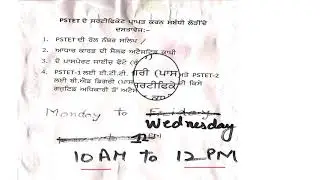 PSTET ਦੇ ਸਰਟੀਫਿਕੇਟ ਪ੍ਰਾਪਤ ਕਰਨ ਸਬੰਧੀ ਲੋੜੀਂਦੇ
ਦਸਤਾਵੇਜ਼:-
1. PSTET ਦੀ ਰੋਲ ਨੰਬਰ ਸਲਿਪ
2. ਆਧਾਰ ਕਾਰਡ ਦੀ ਸੈਲਫ ਅਟੈਸਟਿਡ ਕਾਪੀ
3. ਦੋ ਪਾਸਪੋਰਟ ਸਾਈਜ਼ ਫੋਟੋ
4. PSTET-1 ਲਈ ਈ.ਟੀ.ਟੀ. ਅਤੇ PSTET-2
ਲਈ ਬੀ.ਐਡ ਡਿਗਰੀ (ਪਾਸ ਸਰਟੀਫਿਕੇ ਦੀ ਕਿਸੇ
ਗਜ਼ਟਿਡ ਅਧਿਕਾਰੀ ਤੋਂ
ਰੀ (ਪਾਸ
ਸਰਟੀਫਿਕੇ
Monday to Friday
Wednesday
12
10 AM to 12 PM